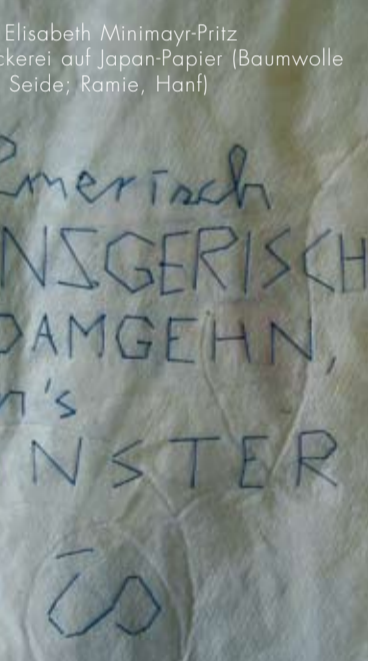 Elisabeth Minimayr-Pritz
ckerei auf Japan-Papier (Baumwolle
Seide; Ramie, Hanf)
merisch
NSGERISCH
DAMGEHN,
n's
NSTER
is